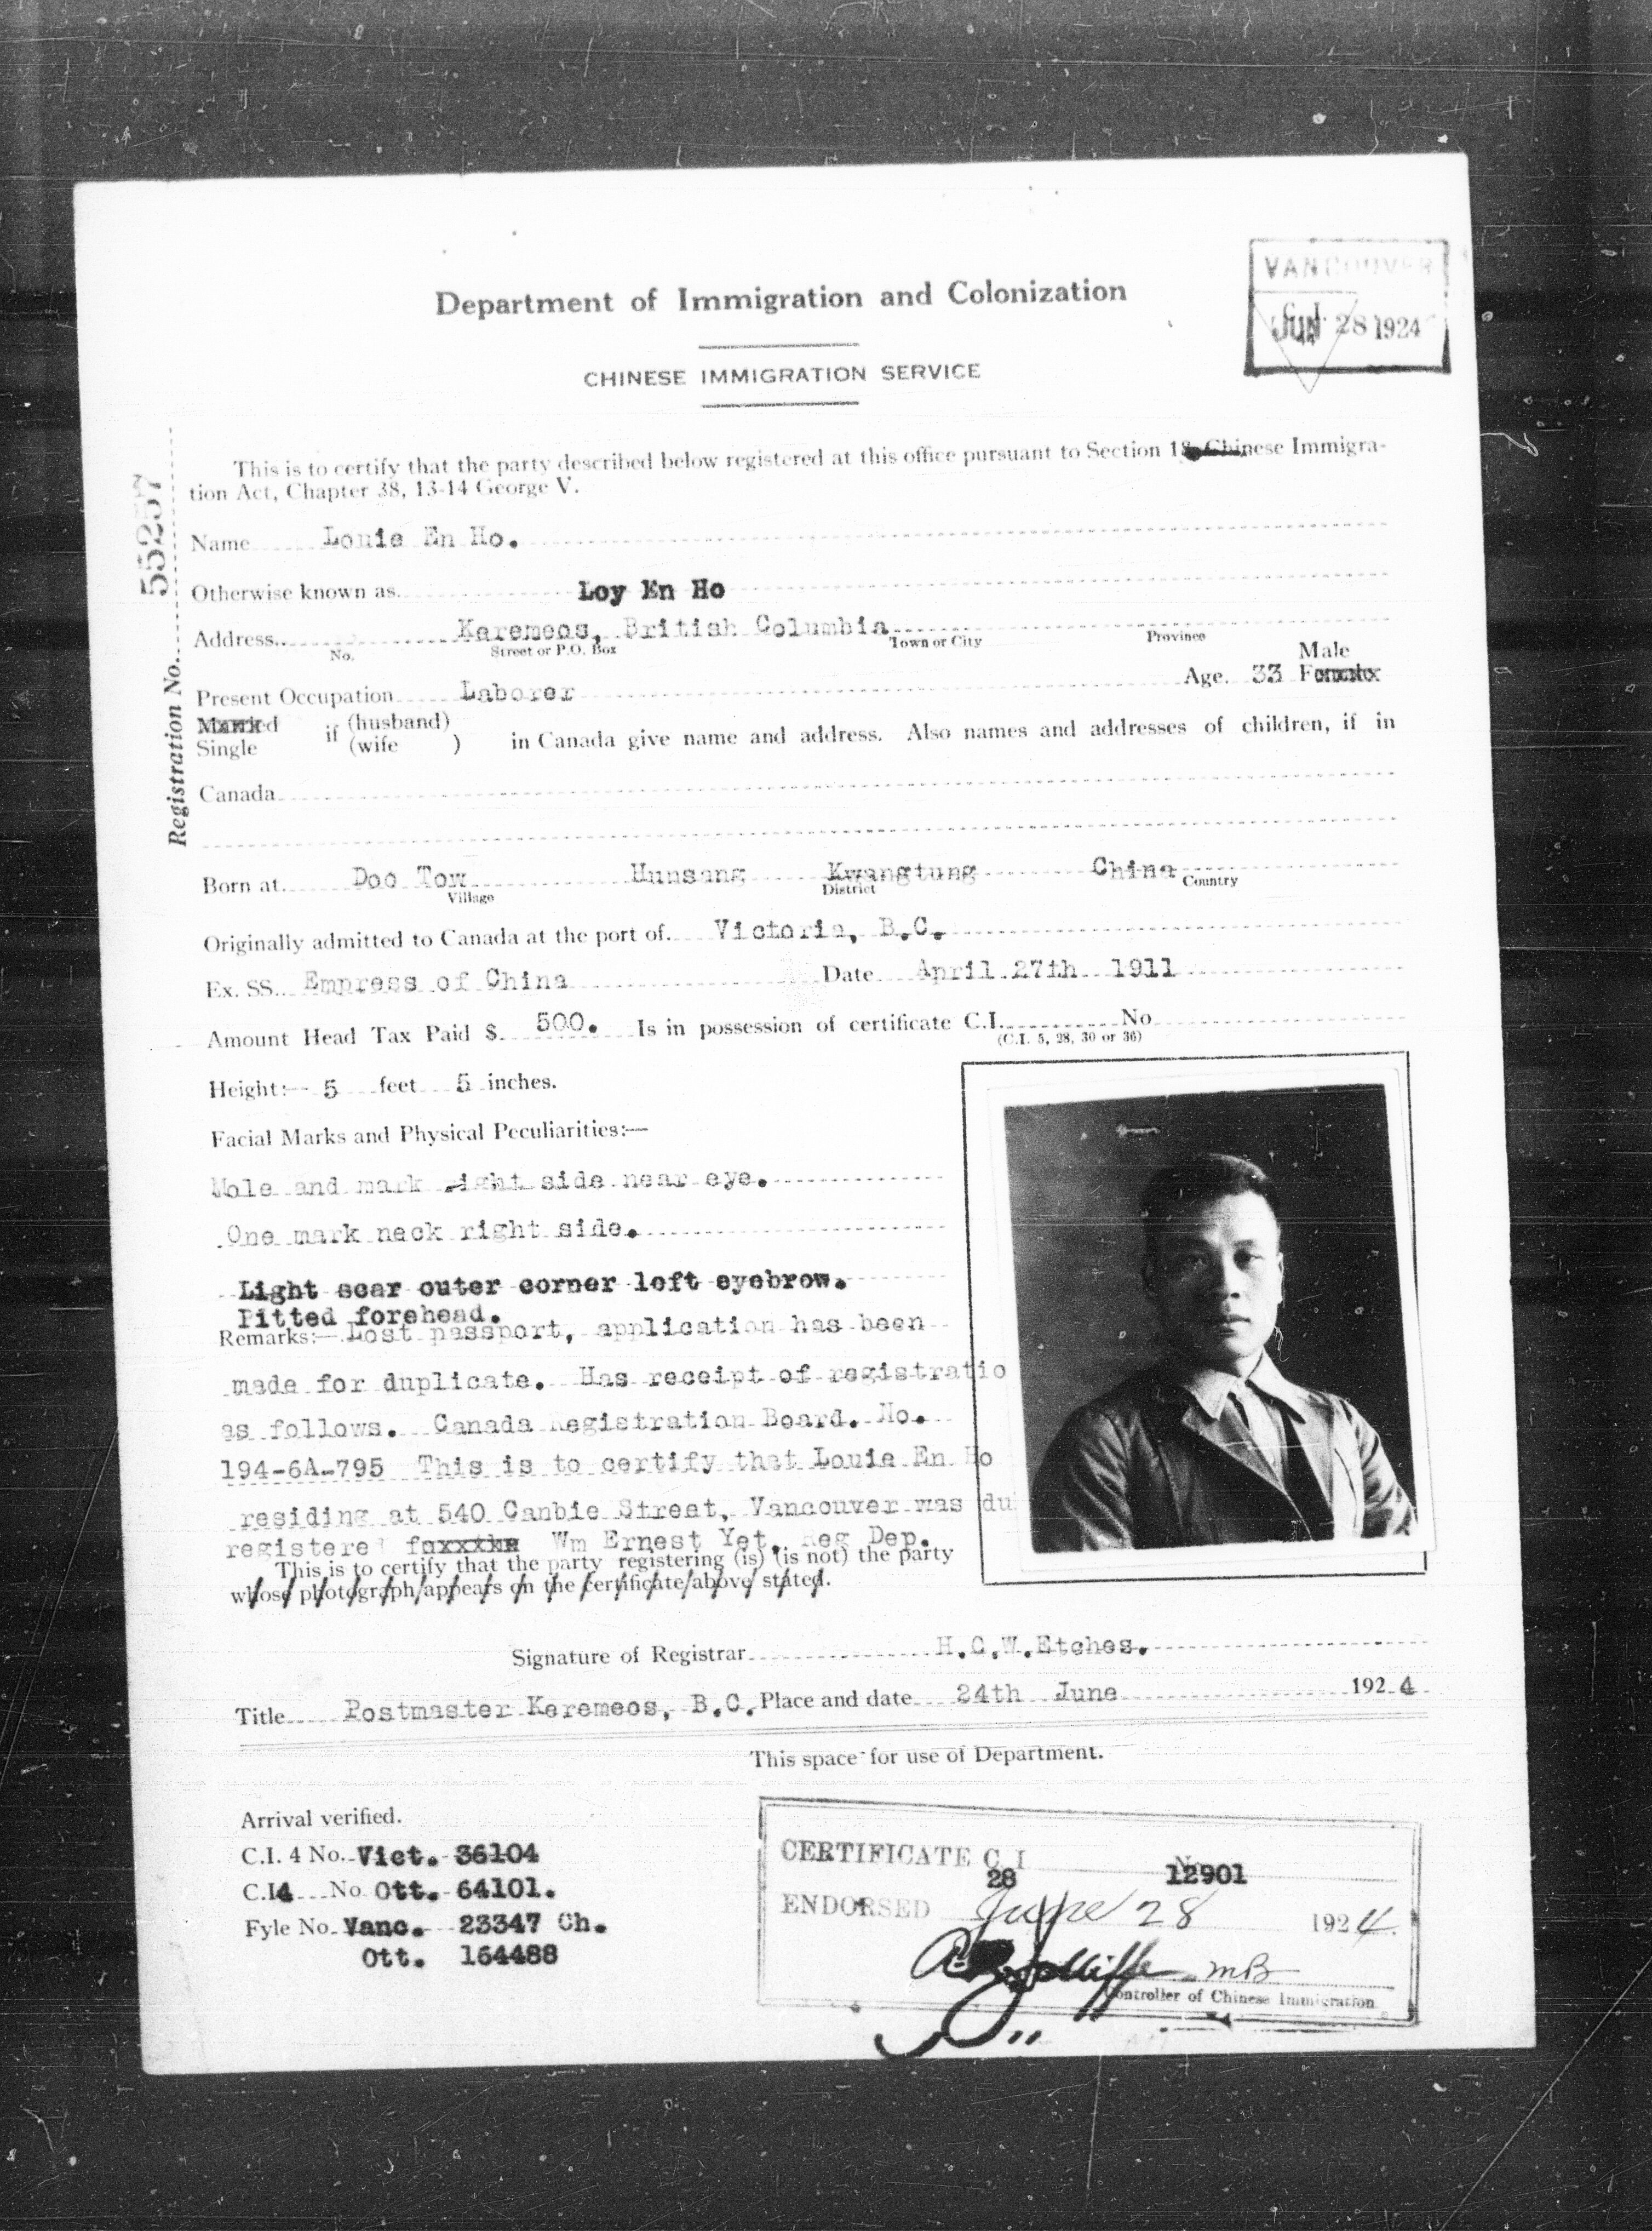 Department of Immigration and Colonization
VANCOUVER
C.I.
JUN 28 1924
CHINESE IMMIGRATION SERVICE
Registration No. 55257
This is to certify that the party described below registered at this office pursuant to Section 18, Chinese Immigra-
tion Act, Chapter 38, 13-14 George V.
Name Louie En Ho.
Otherwise known as Loy En Ho
Address Keremeos, British Columbia
No. Street or P.O. Box Town or City Province
Male
Present Occupation Laborer Age. 33 Female
Married if (husband) in Canada give name and address. Also names and addresses of children, if in
Single (wife )
Canada
Born at Doo Tow Hunsang Kwangtung China
Village District Country
Originally admitted to Canada at the port of Victoria, B.C.
Ex. SS. Empress of China Date April 27th 1911
Amount Head Tax Paid $ 500. Is in possession of certificate C.I. No
(C.I. 5, 28, 30 or 36)
Height:— 5 feet 5 inches.
Facial Marks and Physical Peculiarities:—
Mole and mark right side near eye.
One mark neck right side.
Light scar outer corner left eyebrow.
Pitted forehead.
Remarks:— Lost passport, application has been
made for duplicate. Has receipt of registratio
as follows. Canada Registration Board. No.
194-6A-795 This is to certify that Louie En Ho
residing at 540 Canbie Street, Vancouver was du
registered Wm Ernest Yet, Reg Dep.
This is to certify that the party registering (is) (is not) the party
whose photograph appears on the certificate above stated.
Signature of Registrar H.C.W.Etches.
Title Postmaster Keremeos, B.C. Place and date 24th June 1924
This space for use of Department.
Arrival verified.
C.I. 4 No. Vict. 36104
C.I4 No Ott. 64101.
Fyle No. Vanc. 23347 Ch.
Ott. 164488
CERTIFICATE C I 28 No 12901
ENDORSED June 28 1924
mB
Controller of Chinese Immigration